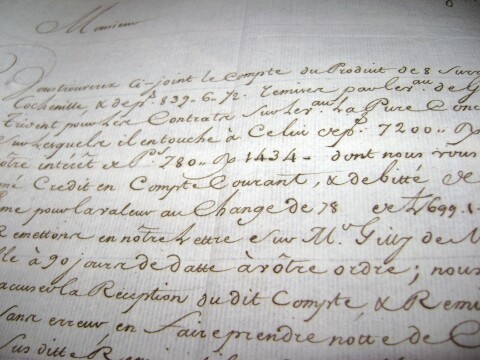 Monsieur
Vous trouverez Cÿ-joint le Compte du Produit de 8 Surr
Cochenille, & de p.s 839.6.72. Remises par le v.au de G
Trident pour Les Contrats sur Le v.au La Pure Conc
sur lesquels il en touche à Celui de p.s 7200 .. p
vôtre intérêt & p.s 780 .. p 1434 - dont nous vous
mé Credit en Compte Courant, & debitte de
me pour la valeur au Change de 78 de 699.1
Remettons en nôtre Lettre sur M.r Gilly de M
lle à 90 jours de datte à vôtre ordre ; nous
accuser la Réception du dit Compte, & Remi
sans erreur, en faire prendre notte de C
sus ditte Remi